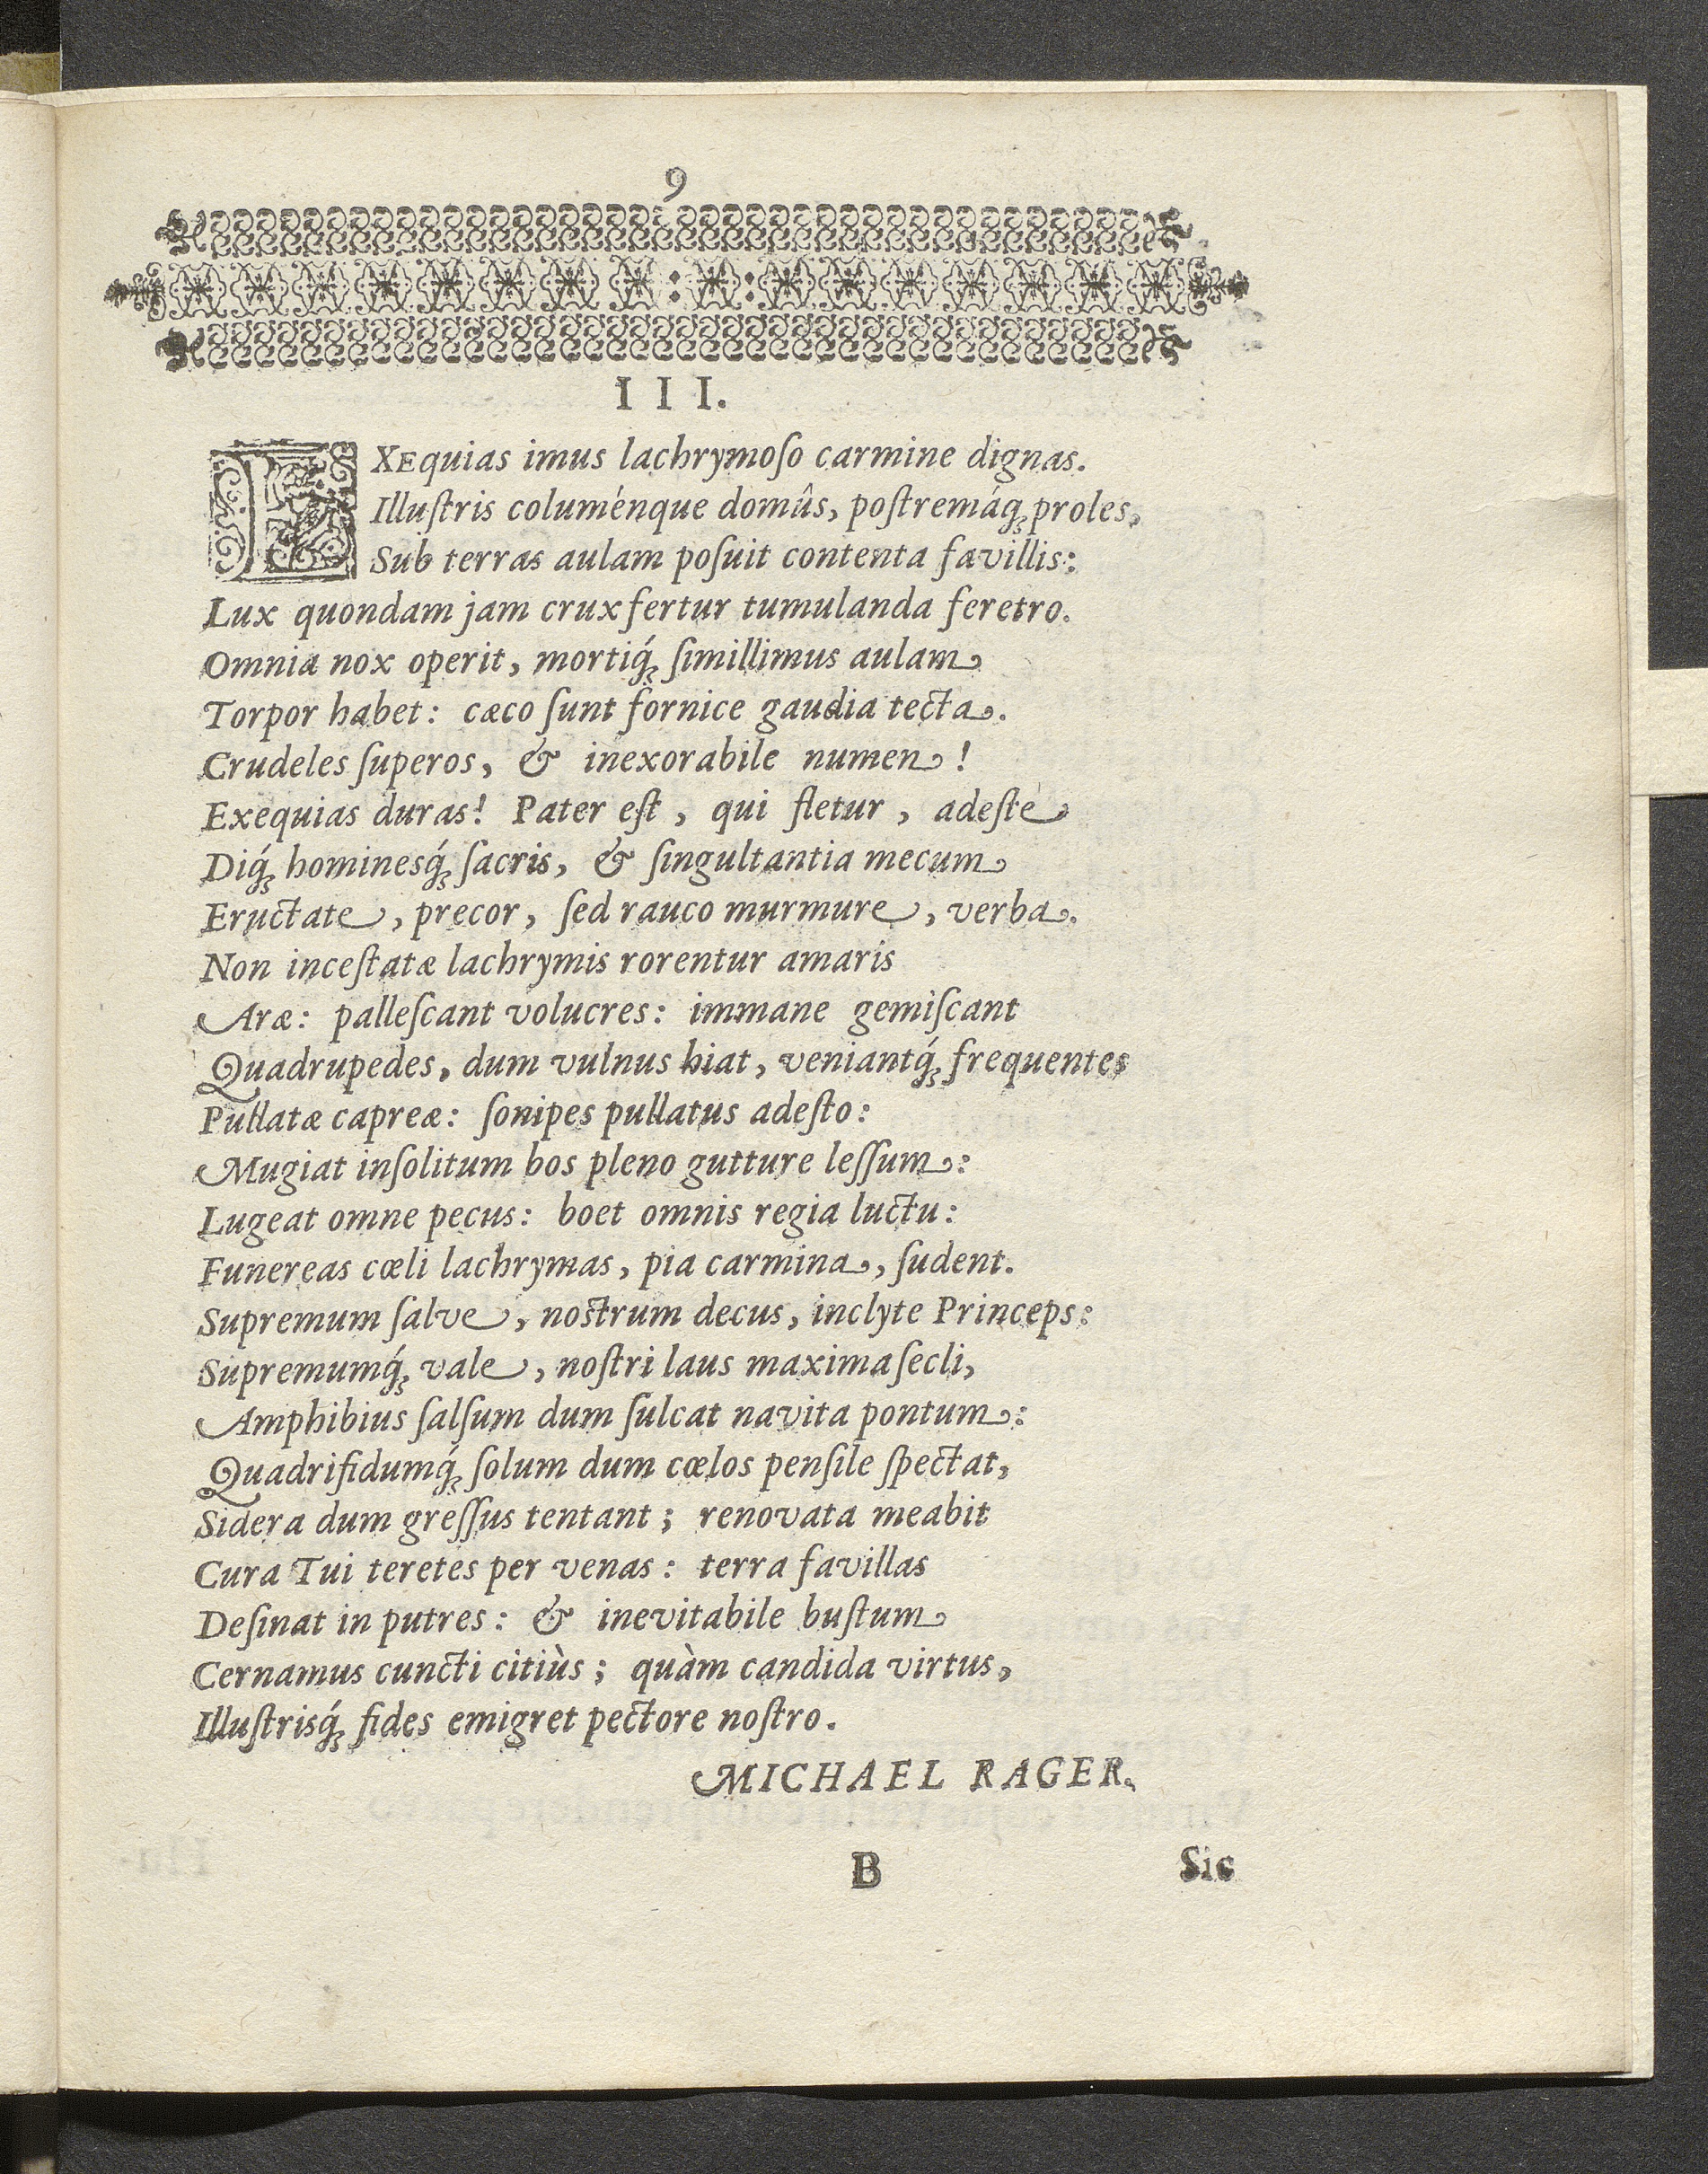 9
III.
EXEquias imus lachrymoſo carmine dignas.
Illuſtris columénque domûs, poſtremáq́ꝫ proles,
Sub terras aulam poſuit contenta favillis:
Lux quondam jam crux fertur tumulanda feretro.
Omnia nox operit, mortiq́ꝫ ſimillimus aulam
Torpor habet: cæco ſunt fornice gaudia tecta.
Crudeles ſuperos, & inexorabile numen!
Exequias duras! Pater eſt, qui fletur, adeſte
Diq́ꝫ hominesq́ꝫ ſacris, & ſingultantia mecum
Eructate, precor, ſed rauco murmure, verba.
Non inceſtatæ lachrymis rorentur amaris
Aræ: palleſcant volucres: immane gemiſcant
Quadrupedes, dum vulnus hiat, veniantq́ꝫ frequentes
Pullatæ capreæ: ſonipes pullatus adeſto:
Mugiat inſolitum bos pleno gutture leſſum:
Lugeat omne pecus: boet omnis regia luctu:
Funereas cœli lachrymas, pia carmina, ſudent.
Supremum ſalve, nostrum decus, inclyte Princeps:
Supremumq́ꝫ vale, noſtri laus maxima ſecli,
Amphibius ſalſum dum ſulcat navita pontum:
Quadrifidumq́ꝫ ſolum dum cœlos penſile ſpectat,
Sidera dum greſſus tentant; renovata meabit
Cura Tui teretes per venas: terra favillas
Deſinat in putres: & inevitabile buſtum
Cernamus cuncti citiùs; quàm candida virtus,
Illuſtrisq́ꝫ fides emigret pectore noſtro.
MICHAEL RAGER.
B Sic